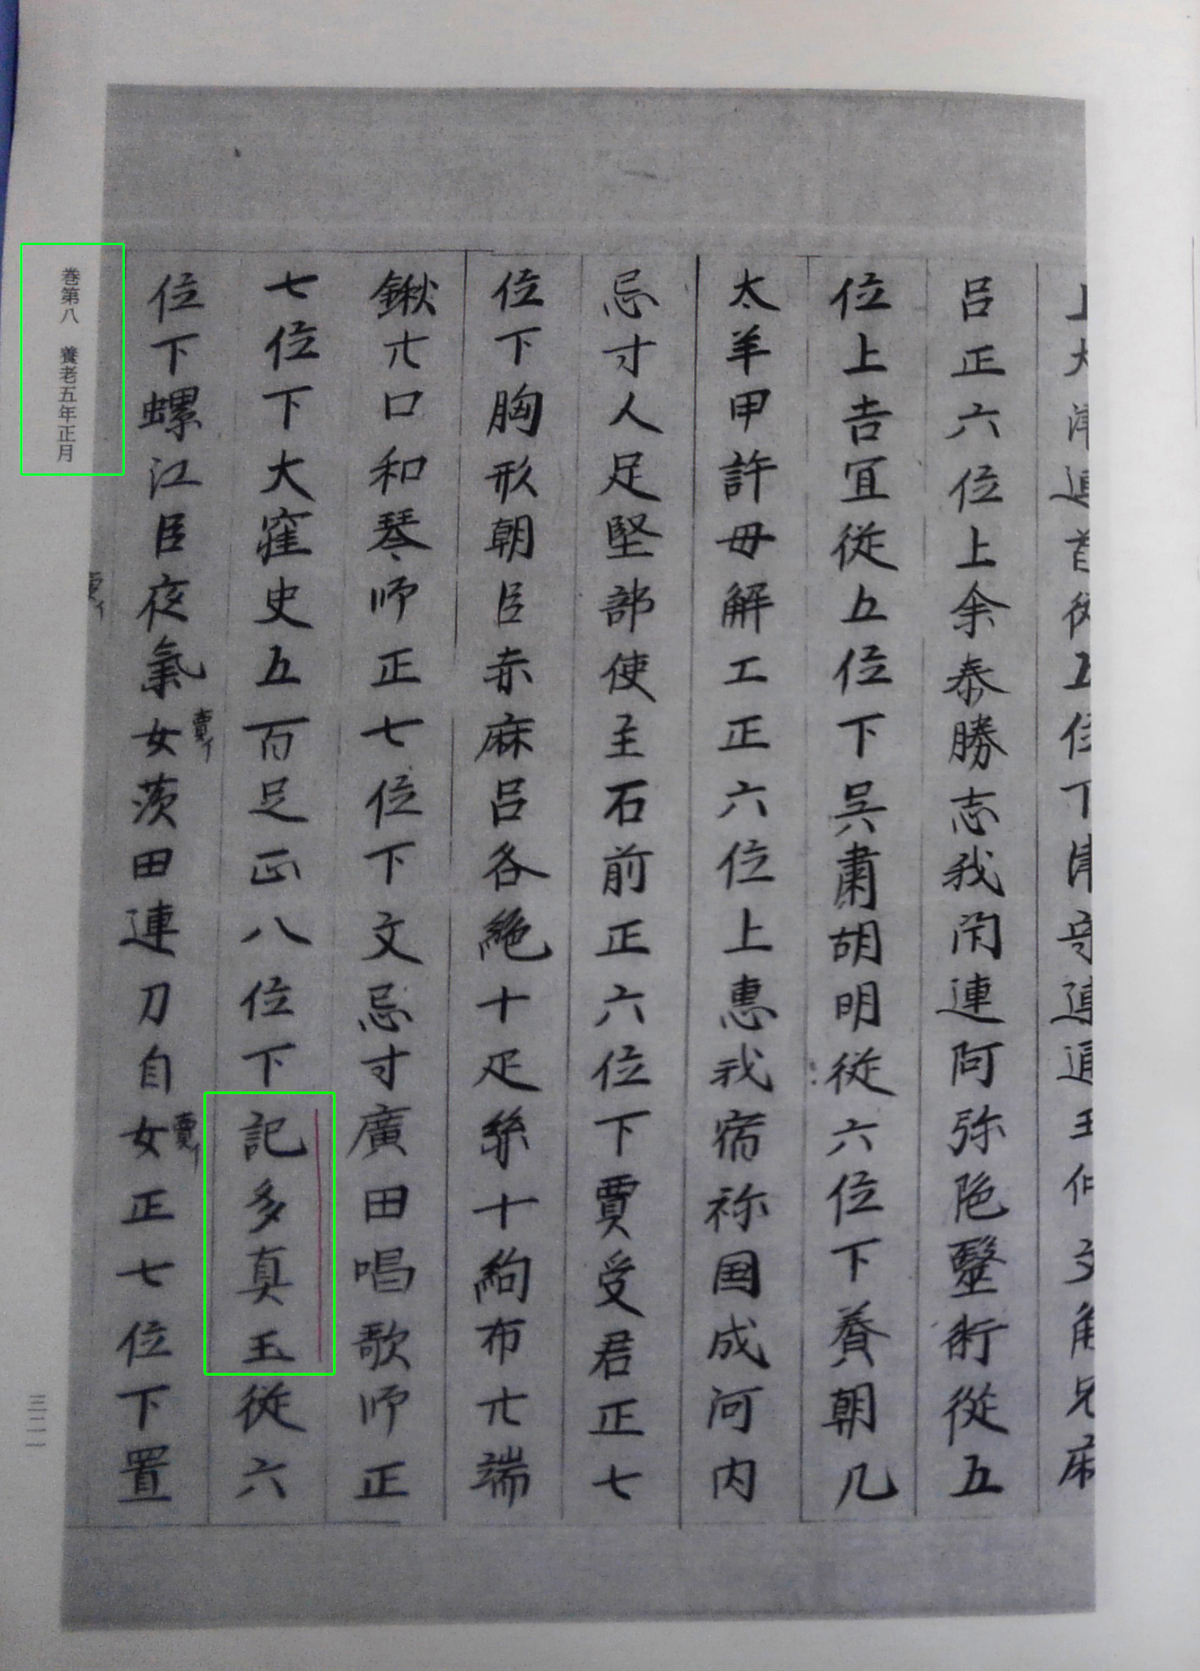 上大津連首從五位下津守連通王仲文角兄麻
呂正六位上余泰勝志我閇連阿弥陁毉術從五
位上吉冝從五位下呉肅胡明從六位下養朝几
太羊甲許毋解工正六位上惠我宿祢国成河内
忌寸人足堅部使主石前正六位下賈受君正七
位下胸形朝臣赤麻呂各絁十疋絲十絇布廿端
鍬廿口和琴師正七位下文忌寸廣田唱歌師正
七位下大窪史五百足正八位下記多真玉從六
位下螺江臣夜氣女茨田連刀自女正七位下置
賣イ
賣イ
賣イ
巻第八 養老五年正月
三二一